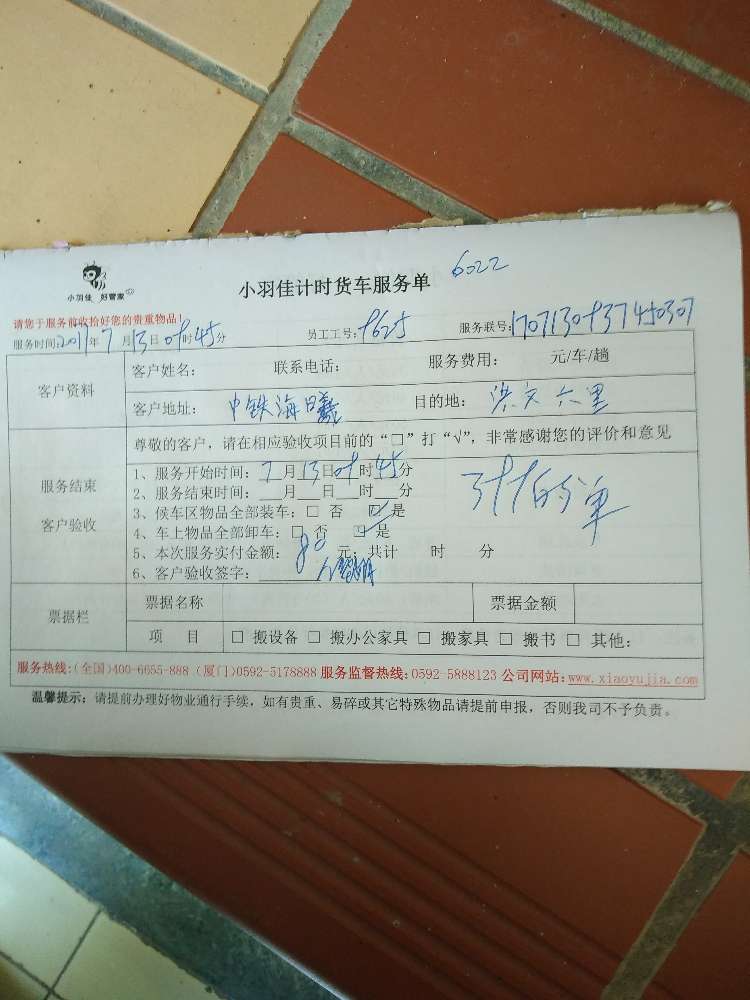 小羽佳 好管家
小羽佳计时货车服务单 6022
请您于服务前收拾好您的贵重物品!
服务时间2017年7月13日09时45分 员工工号:9625 服务联号:
客户资料
客户姓名: 联系电话: 服务费用: 元/车/趟
客户地址: 中铁海曦 目的地: 洪文六里
尊敬的客户,请在相应验收项目前的“□”打“√”,非常感谢您的评价和意见
服务结束
客户验收
1、服务开始时间: 7月13日09时45分
2、服务结束时间: 月 日 时 分
3、候车区物品全部装车: □ 否 ☑是
4、车上物品全部卸车: □ 否 ☑是
5、本次服务实付金额: 80元; 共计 时 分
6、客户验收签字:
的单
票据栏
票据名称 票据金额
项 目 □ 搬设备 □ 搬办公家具 □ 搬家具 □ 搬书 □ 其他:
服务热线:(全国)400-6655-888 (厦门)0592-5178888 服务监督热线:0592-5888123 公司网站:www.xiaoyujia.com
温馨提示: 请提前办理好物业通行手续,如有贵重、易碎或其它特殊物品请提前申报,否则我司不予负责。